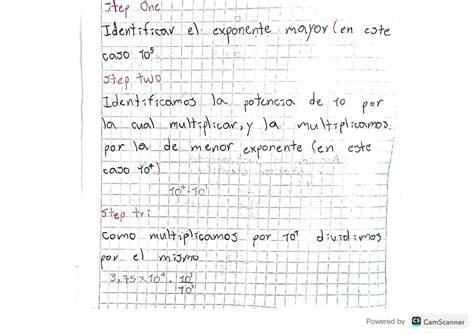 Step One
Identificar el exponente mayor (en este
caso 10⁵
Step two
Identificamos la potencia de 10 por
la cual multiplicar, y la multiplicamos
por la de menor exponente (en este
caso 10⁴)
10⁴·10¹
Step tri
Como multiplicamos por 10¹ dividimos
por el mismo
3,75×10⁴ · 10¹
10¹
Powered by CS CamScanner